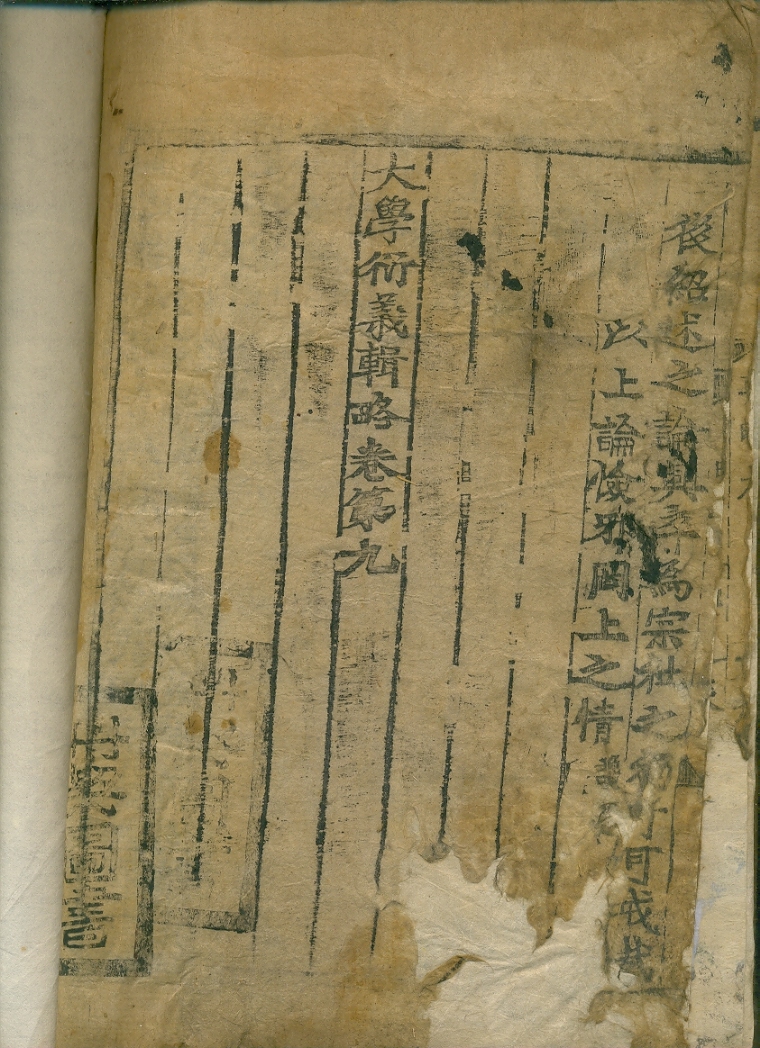 後紹述之論興卒為宗社之禍吁可戒哉
以上論憸邪罔上之情
大學衍義輯略卷第九
圖書